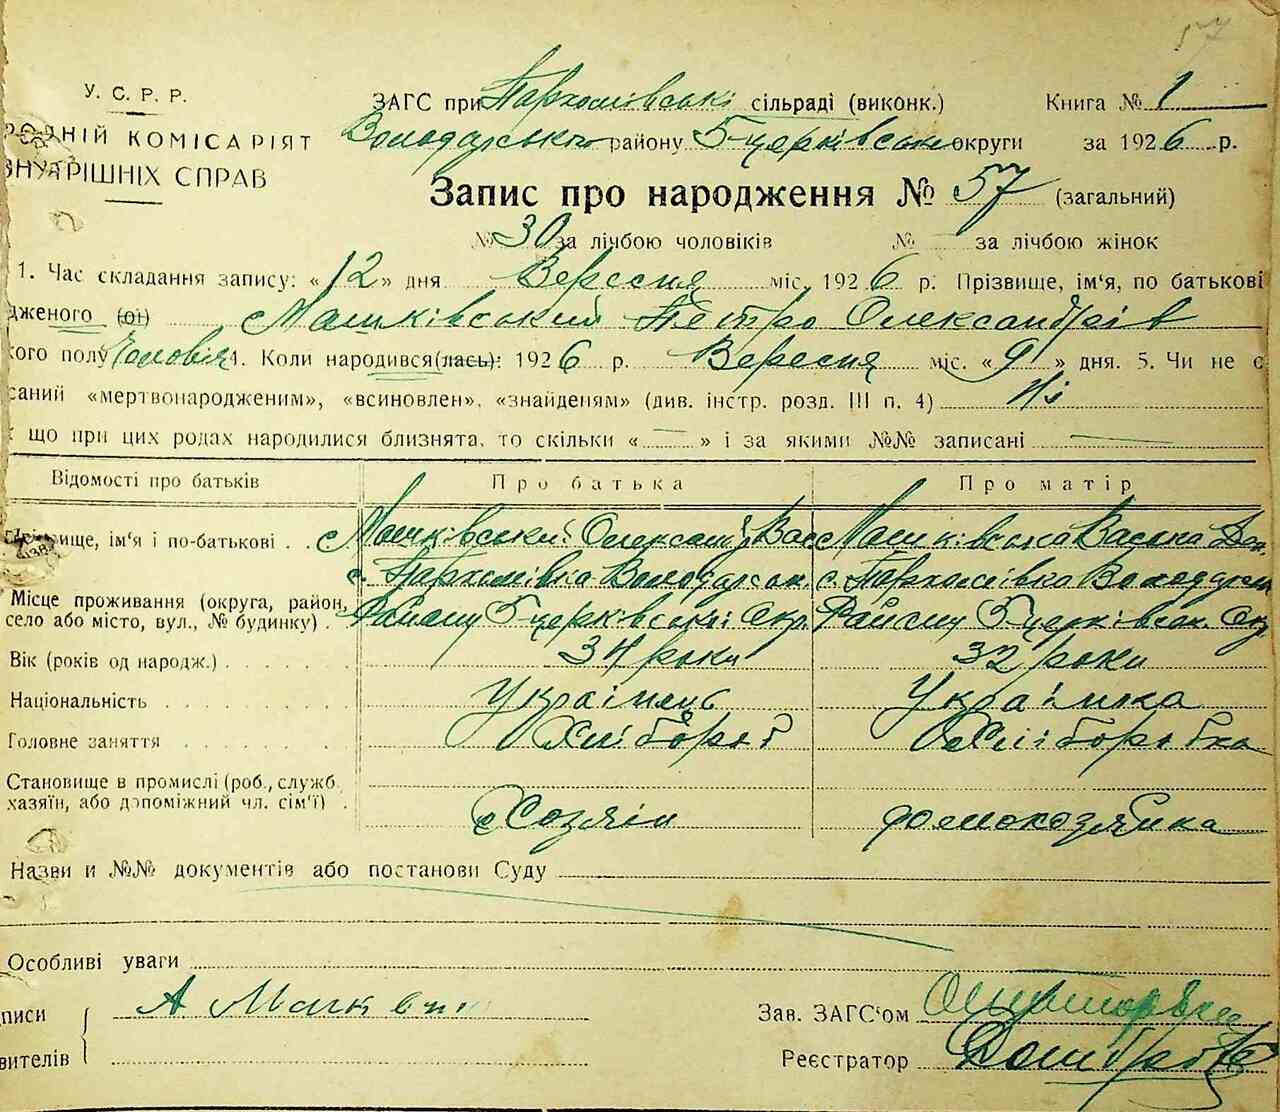 57
У. С. Р. Р.
ЗАГС при Пархомівській сільраді (виконк.) Книга № 1
РОДНІЙ КОМІСАРІЯТ
Володарського району Б-церківської округи за 1926 р.
ВНУТРІШНІХ СПРАВ
Запис про народження № 57 (загальний)
№ 30 за лічбою чоловіків № за лічбою жінок
1. Час складання запису: «12» дня Вересня міс. 1926 р. Прізвище, ім'я, по батькові
дженого (ої) Машківський Петро Олександрів
кого полу Чоловіч 4. Коли народився(лась): 1926 р. Вересня міс. «9» дня. 5. Чи не є
саний «мертвонародженим», «всиновлен», «знайденям» (див. інстр. розд. III п. 4) Ні
що при цих родах народилися близнята, то скільки « — » і за якими №№ записані —
Відомості про батьків Про батька Про матір
вище, ім'я і по-батькові . . Машківський Олександ. Вас Машківська Васька
с. Пархомівка Володарськ. с. Пархомівка Володарськ
Місце проживання (округа, район, село або місто, вул., № будинку) . Району Б-церківської Окр. Району Б-церківськ. Окр
Вік (років од народж.) . . . . . . 34 роки 32 роки
Національність . . . . . . . . . Українець Українка
Головне заняття . . . . . . . . Хлібороб Хліборобка
Становище в промислі (роб., служб. хазяїн, або допоміжний чл. сім'ї) . Хозяїн домохозяйка
Назви и №№ документів або постанови Суду
Особливі уваги
писи А Машківсь
Зав. ЗАГС'ом
вителів
Реєстратор